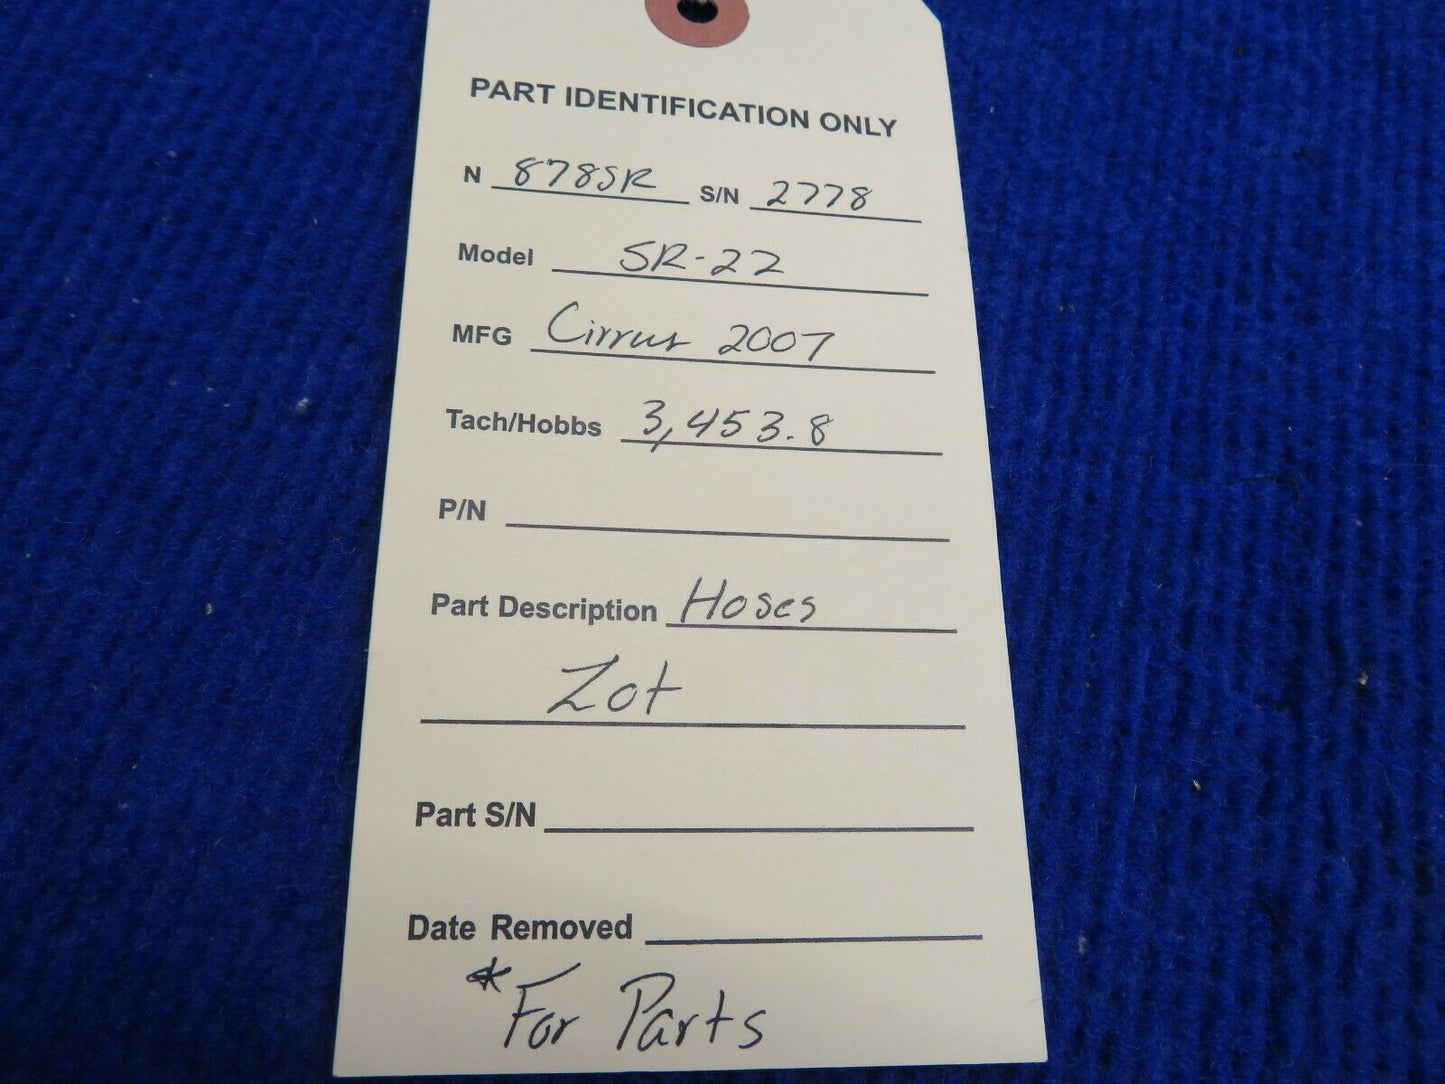 PART IDENTIFICATION ONLY
N 878SR S/N 2778
Model SR-22
MFG Cirrus 2007
Tach/Hobbs 3,453.8
P/N
Part Description Hoses
Lot
Part S/N
Date Removed
*For Parts